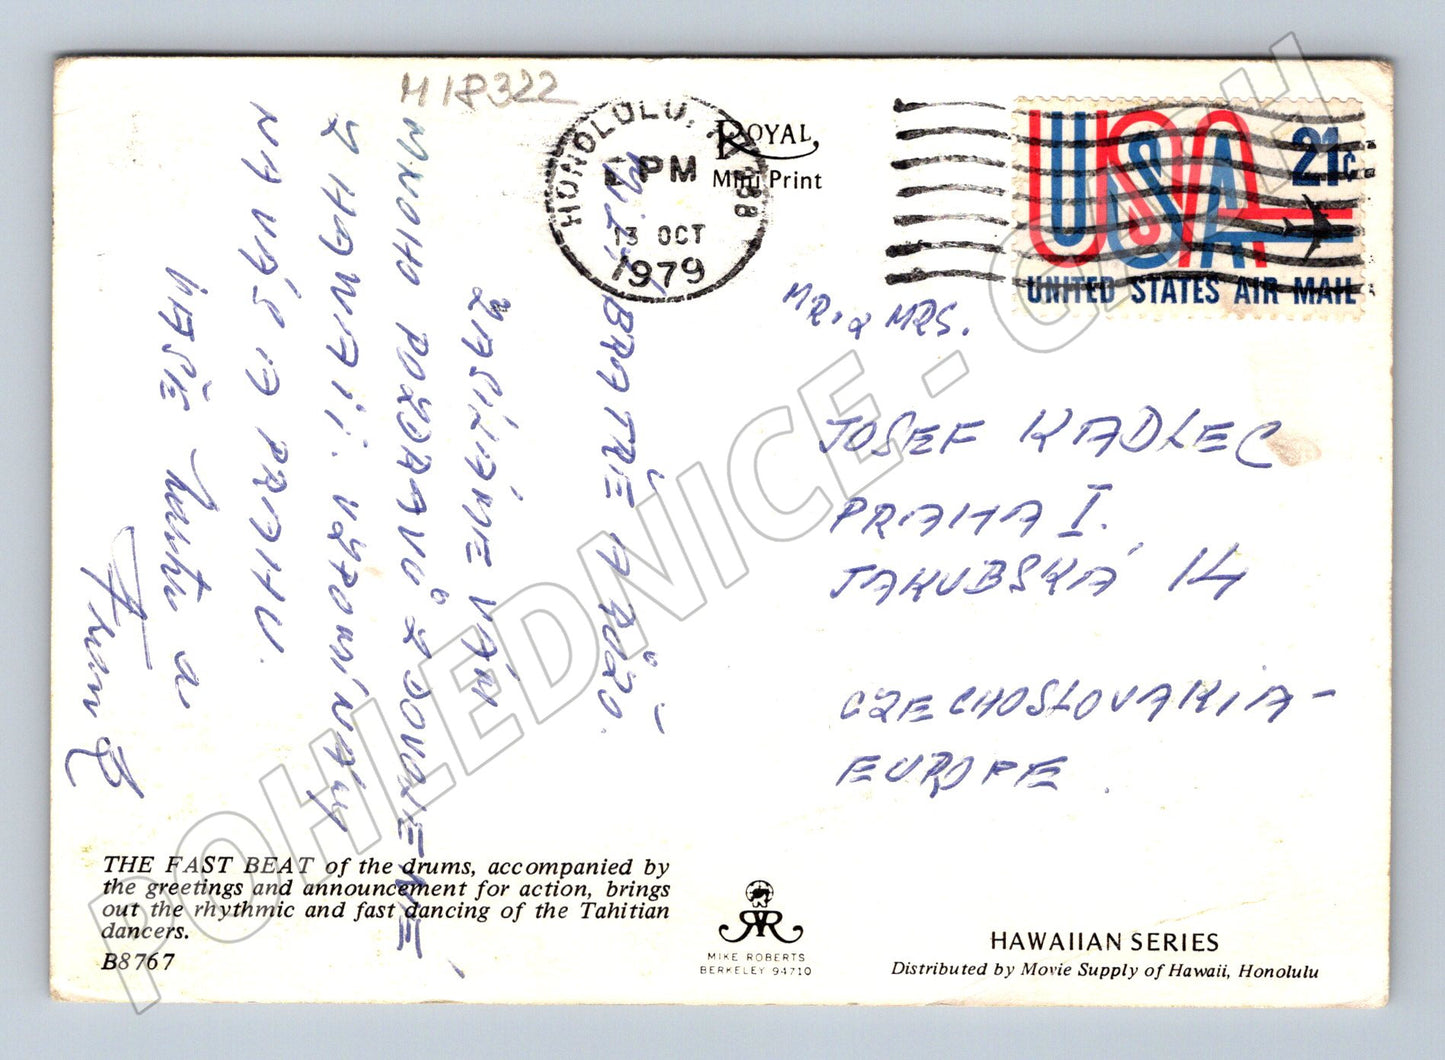 M 18322
HONOLULU, 
PM
13 OCT
1979
ROYAL
Mini Print
USA
21c
UNITED STATES AIR MAIL
BRATŘE A RŮŽO
ZASÍLÁME VÁM
MNOHO POZDRAVŮ Z DOVOLENÉ
Z HAWAII. VZPOMÍNÁME
NA VÁS A PRAHU.
VAŠE a
MR. & MRS.
JOSEF KADLEC
PRAHA I.
JAKUBSKÁ 14
CZECHOSLOVAKIA-
EUROPE
THE FAST BEAT of the drums, accompanied by
the greetings and announcement for action, brings
out the rhythmic and fast dancing of the Tahitian
dancers.
B8767
MIKE ROBERTS
BERKELEY 94710
HAWAIIAN SERIES
Distributed by Movie Supply of Hawaii, Honolulu
POHLEDNICE - CASH